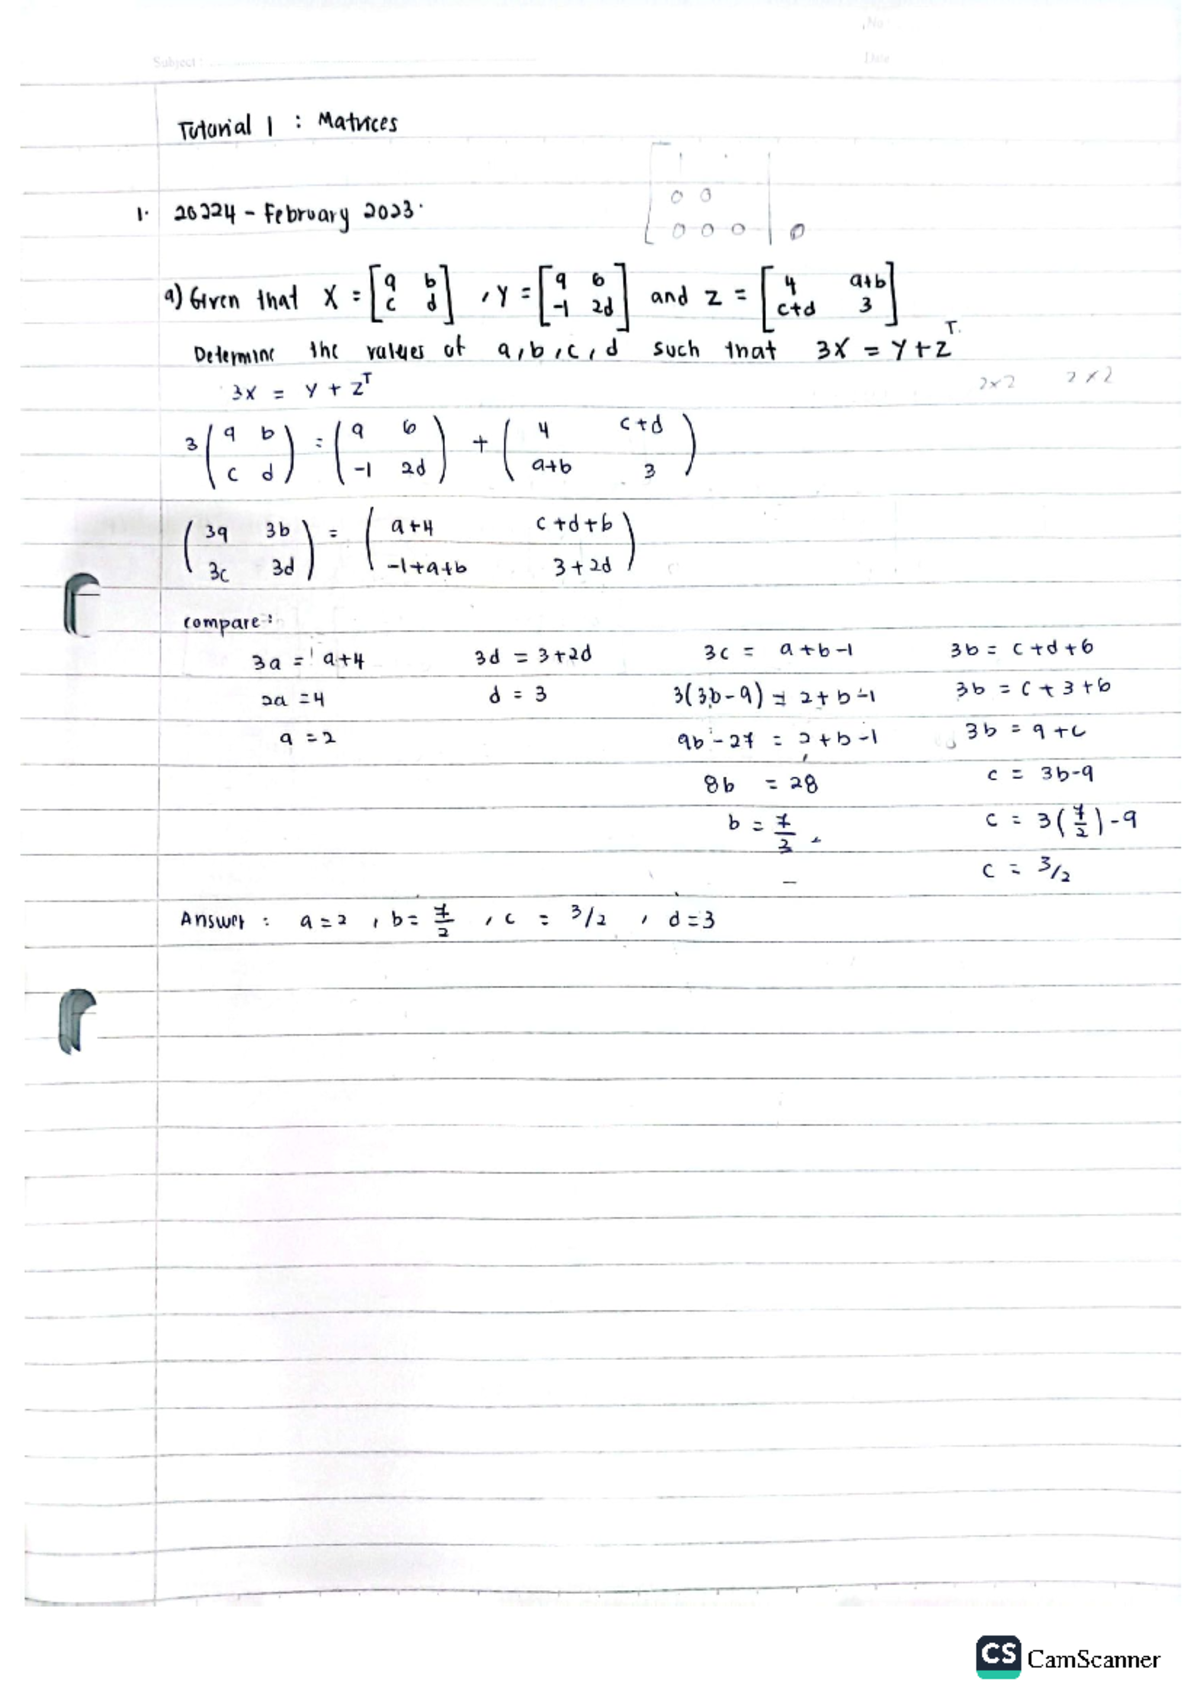 No
Subject :
Date
Tutorial 1 : Matrices
1. 20224 - February 2023.
0 0
0 0 0 0
a) Given that X = [a b c d] , Y = [a 6 -1 2d] and Z = [4 a+b c+d 3]
Determine the values of a, b, c, d such that 3X = Y + Z^T.
3X = Y + Z^T 2x2 2x2
3 (a b c d) = (a 6 -1 2d) + (4 c+d a+b 3)
(3a 3b 3c 3d) = (a+4 c+d+6 -1+a+b 3+2d)
compare :
3a = a+4 3d = 3+2d 3c = a+b-1 3b = c+d+6
2a = 4 d = 3 3(3b-9) = 2+b-1 3b = c+3+6
a = 2 9b-27 = 2+b-1 3b = 9+c
8b = 28 c = 3b-9
b = 7/2 c = 3(7/2)-9
c = 3/2
Answer : a = 2 , b = 7/2 , c = 3/2 , d = 3
CS CamScanner